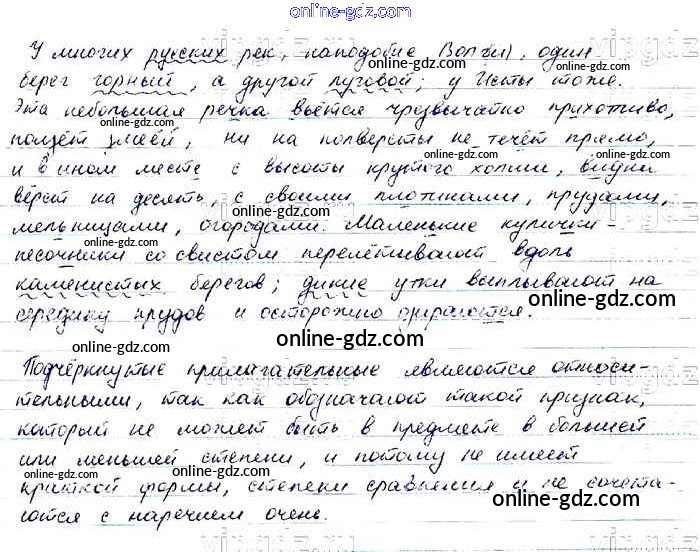 online-gdz.com
У многих русских рек, наподобие Волги, один
берег горный, а другой луговой; у Исты тоже.
Эта небольшая речка вьётся чрезвычайно прихотливо,
ползёт змеёй, ни на полверсты не течёт прямо,
и в ином месте с высоты крутого холма, видна
вёрст на десять, с своими плотинами, прудами,
мельницами, огородами. Маленькие кулички-
песочники со свистом перелётывают вдоль
каменистых берегов; дикие утки выплывают на
середину прудов и осторожно озираются.
Подчёркнутые прилагательные являются относи-
тельными, так как обозначают такой признак,
который не может быть в предмете в большей
или меньшей степени, и потому не имеет
краткой формы, степени сравнения и не сочета-
ются с наречием очень.
online-gdz.com